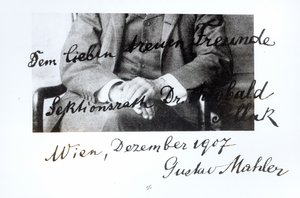 Dem lieben treuen Freunde
Sektionsrath Dr
Wien, Dezember 1907
Gustav Mahler